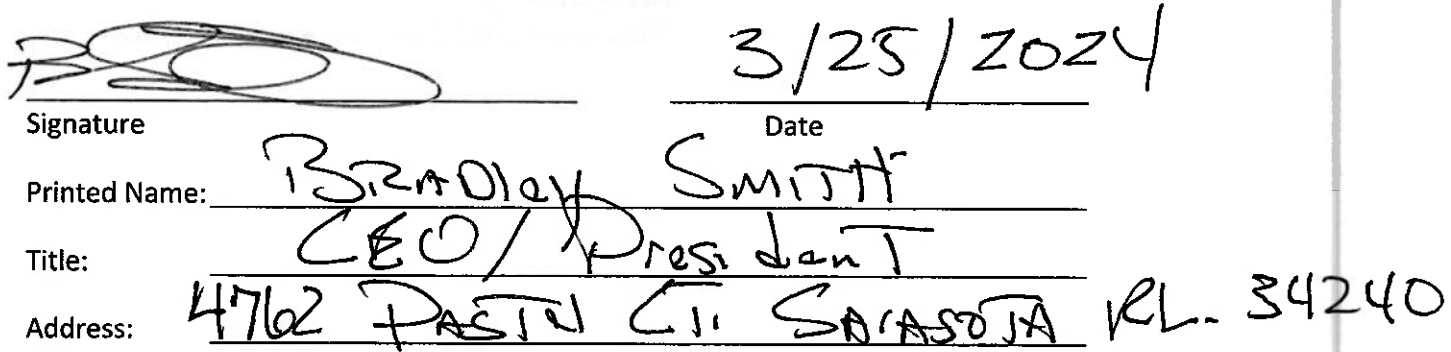 3/25/2024
Signature Date
Printed Name: BRADley SMITH
Title: CEO/President
Address: 4762 CT. SArASOTA FL. 34240